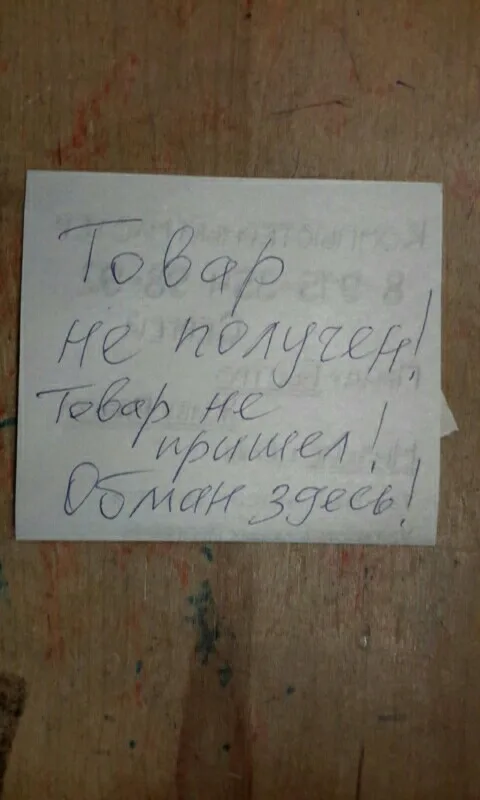 Товар
не получен!
Товар не
пришел!
Обман здесь!